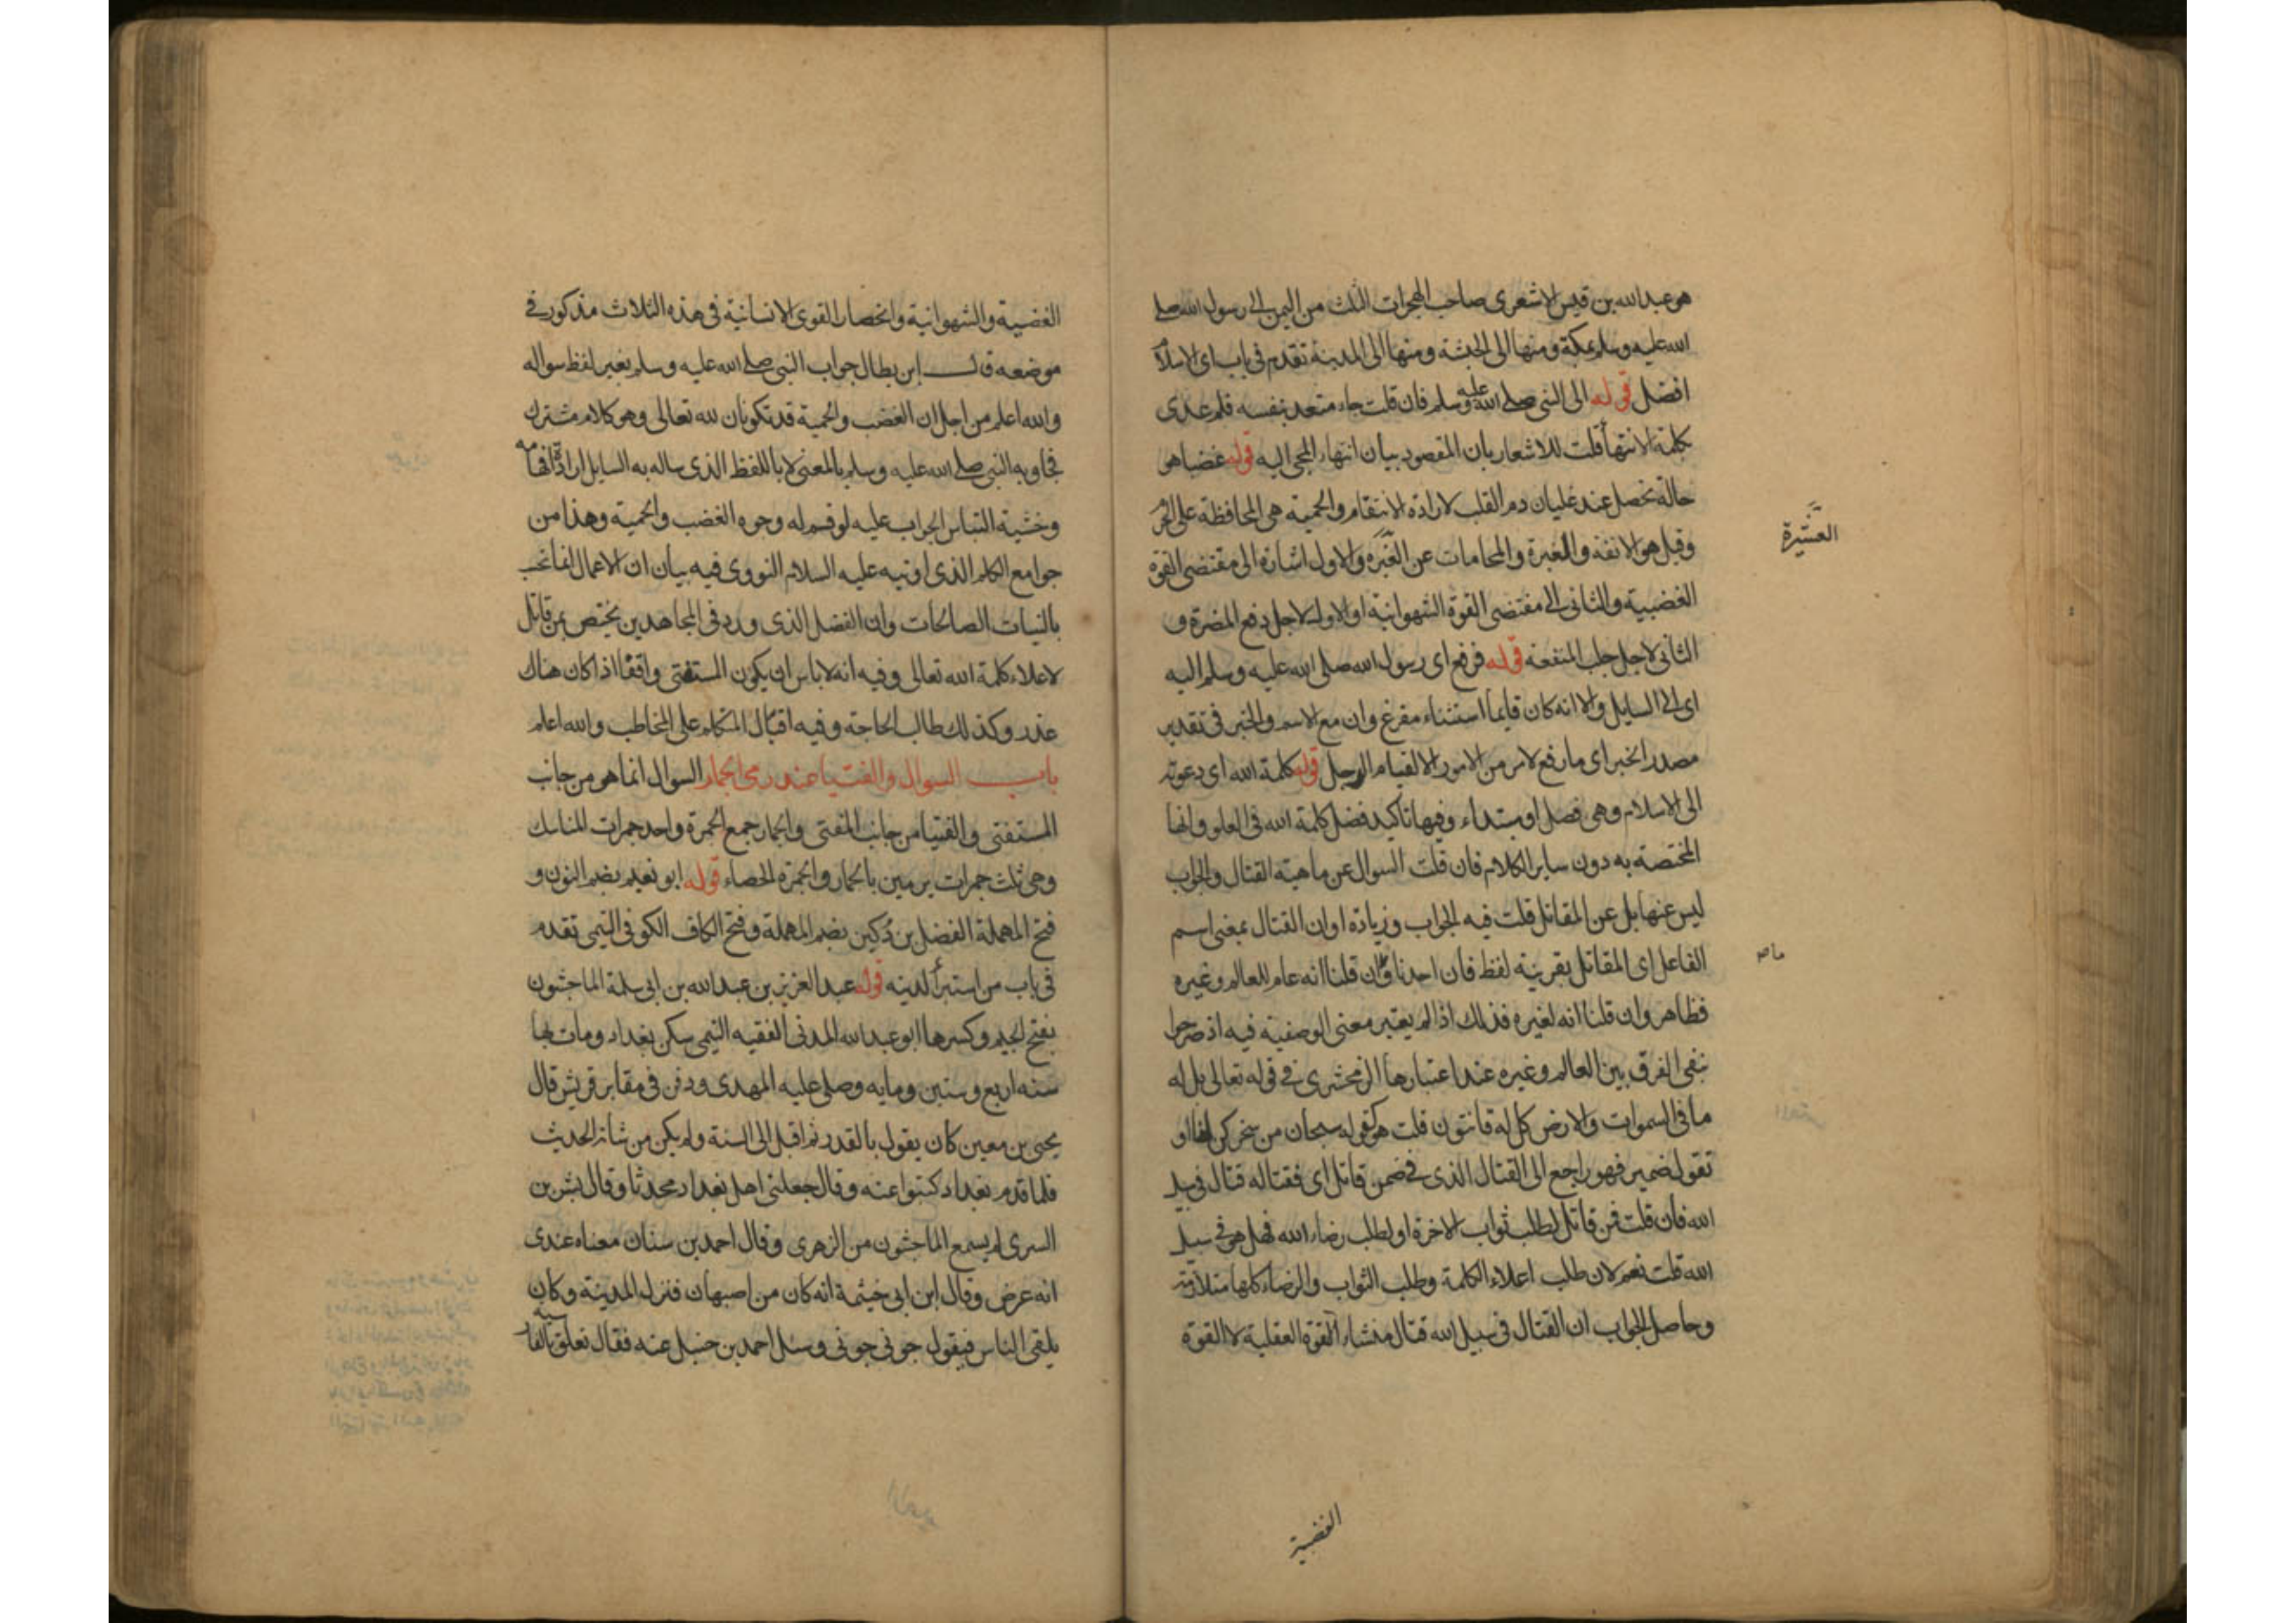 هو عبد الله بن قيس الاشعرى صاحب الهجرات الثلث من اليمن الى رسول الله صلى
الله عليه وسلم بمكة ومنها الى الحبشة ومنها الى المدينة تقدم فى باب اى الاسلام
افضل قوله الى النبى صلى الله عليه وسلم فان قلت جاء متعد بنفسه فلم عدى
بكلمة الانتهاء قلت للاشعار بان المقصود بيان انتهاء المجى اليه قوله غضبا هو
حالة تحصل عند غليان دم القلب لارادة الانتقام والحمية هى المحافظة على الحرم
وقيل هو الانفة والغيرة والمحامات عن والاول اشارة الى مقتضى القوة
العشيرة
الغضبية والثانى الى مقتضى القوة الشهوانية او الاول لاجل دفع المضرة و
الثانى لاجل جلب المنفعة قوله فرفع اى رسول الله صلى الله عليه وسلم اليه
اى الى السايل والا انه كان قايما استثناء مفرغ وان مع الاسم والخبر فى تقدير
مصدر الخبر اى ما رفع لامر من الامور الا لقيام الرجل قوله كلمة الله اى دعوته
الى الاسلام وهى فصل او مبتداء وفيها تاكيد فضل كلمة الله فى العلو وانها
المختصة به دون ساير الكلام فان قلت السوال عن ماهية القتال والجواب
ليس عنها بل عن المقاتل قلت فيه الجواب وزيادة او ان القتال بمعنى اسم
الفاعل اى المقاتل بقرينة لفظ فان احدنا وان قلنا انه عام للعالم وغيره
ما ص
فظاهر وان قلنا انه لغيره فذلك اذا لم يعتبر معنى الوصفية فيه اذ صرحوا
بنفى الفرق بين العالم وغيره عند اعتبارها الزمخشرى فى قوله تعالى بل له
ما فى السموات والارض كل له قانتون قلت هو كقوله سبحان من سخركن لنا او
تقول ضمير فهو راجع الى القتال الذى فى ضمن قاتل اى فقتاله قتال فى سبيل
الله فان قلت فمن قاتل لطلب ثواب الاخرة او لطلب رضاء الله فهل هو فى سبيل
الله قلت نعم لان طلب اعلاء الكلمة وطلب الثواب والرضاء كلها متلازمة
وحاصل الجواب ان القتال فى سبيل الله قتال منشاء القوة العقلية لا القوة
الغضبية
الغضبية والشهوانية وانحصار القوى الانسانية فى هذه الثلاث مذكور فى
موضعه قال ابن بطال جواب النبى صلى الله عليه وسلم بغير لفظ سواله
والله اعلم من اجل ان الغضب والحمية قد تكونان لله تعالى وهو كلام مشترك
فجاوبه النبى صلى الله عليه وسلم بالمعنى لا باللفظ الذى ساله به السايل ارادة افهامه
وخشية التباس الجواب عليه لو قسم له وجوه الغضب والحمية وهذا من
جوامع الكلم الذى اوتيه عليه السلام النووى فيه بيان ان الاعمال انما تحسب
بالنيات الصالحات وان الفضل الذى ورد فى المجاهدين يختص بمن قاتل
لاعلاء كلمة الله تعالى وفيه انه لا باس ان يكون المستفتى واقفا اذا كان هناك
عذر وكذلك طالب الحاجة وفيه اقبال المتكلم على المخاطب والله اعلم
باب السوال والفتيا عند رمى الجمار السوال انما هو من جانب
المستفتى والفتيا من جانب المفتى والجمار جمع الجمرة واحد جمرات المناسك
وهى ثلث جمرات يرمين بالجمار والجمرة الحصاء قوله ابو نعيم بضم النون و
فتح المهملة الفضل بن دكين بضم المهملة وفتح الكاف الكوفى التيمى تقدم
فى باب من استبرأ لدينه قوله عبد العزيز بن عبد الله بن ابى سلمة الماجشون
بفتح الجيم وكسرها ابو عبد الله المدنى الفقيه التيمى سكن بغداد ومات بها
سنه اربع وستين ومايه وصلى عليه المهدى ودفن فى مقابر قريش قال
يحيى بن معين كان يقول بالقدر ثم اقبل الى السنة ولم يكن من شانه الحديث
فلما قدم بغداد كتبوا عنه وقال جعلنى اهل بغداد محدثا وقال بشر بن
السرى لم يسمع الماجشون من الزهرى وقال احمد بن سنان معناه عندى
انه عرض وقال ابن ابى خيثمة انه كان من اصبهان فنزل المدينة وكان
يلقى الناس فيقول جونى جونى وسئل احمد بن حنبل عنه فقال تعلق بالفارسية